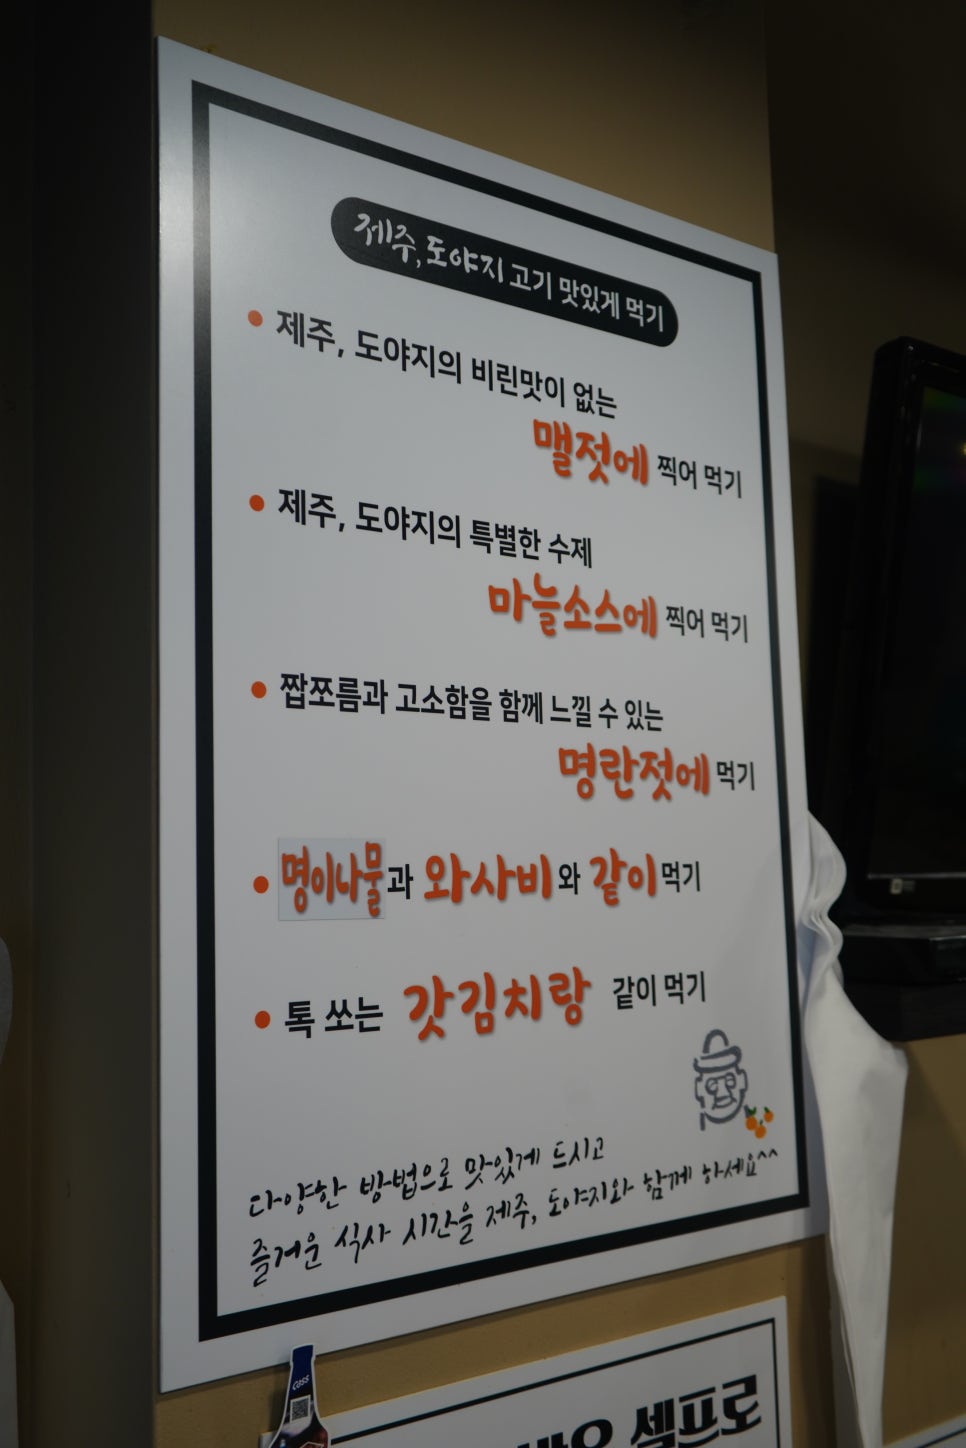 제주, 도야지 고기 맛있게 먹기
제주, 도야지의 비린맛이 없는
맬젓에 찍어 먹기
제주, 도야지의 특별한 수제
마늘소스에 찍어 먹기
짭쪼름과 고소함을 함께 느낄 수 있는
명란젓에 먹기
명이나물과 와사비와 같이 먹기
톡 쏘는 갓김치랑 같이 먹기
다양한 방법으로 맛있게 드시고
즐거운 식사 시간을 제주, 도야지와 함께 하세요^^
Cass
셀프로